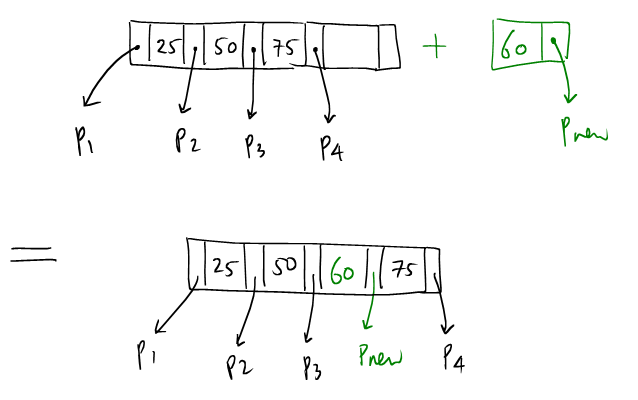 25 50 75 + 60
P1 P2 P3 P4 Pnew
= 25 50 60 75
P1 P2 P3 Pnew P4